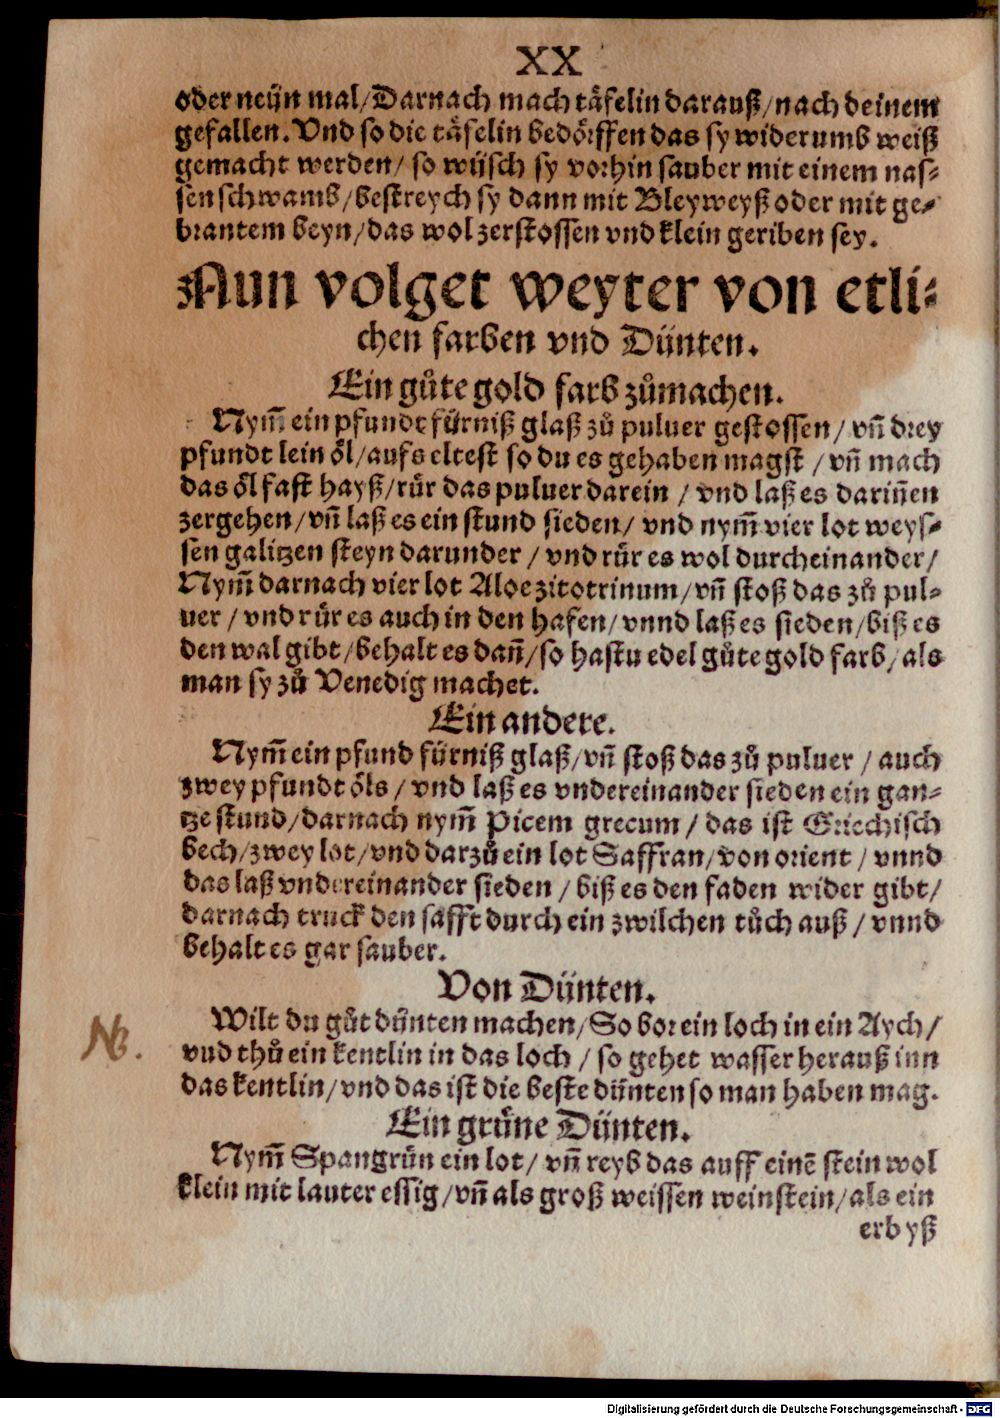 XX
oder neün mal/Darnach mach täfelin darauß/nach deinem
gefallen. Vnd so die täfelin bedörffen das sy widerumb weiß
gemacht werden/ so wüsch sy vorhin sauber mit einem nas-
sen schwamb/bestreych sy dann mit Bleyweyß oder mit ge-
brantem beyn/das wol zerstossen vnd klein geriben sey.
Nun volget weyter von etli-
chen farben vnd Dünten.
Ein gůte gold farb zůmachen.
Nym̃ ein pfundt fürniß glaß zů puluer gestossen/ vñ drey
pfundt lein öl/aufs eltest so du es gehaben magst /vñ mach
das öl fast hayß/rür das puluer darein / vnd laß es dariñen
zergehen/vñ laß es ein stund sieden/ vnd nym̃ vier lot weys-
sen galitzen steyn darunder / vnd rür es wol durcheinander/
Nym̃ darnach vier lot Aloe zitotrinum/vñ stoß das zů pul-
uer / vnd rür es auch in den hafen/ vnnd laß es sieden/biß es
den wal gibt/behalt es dañ/so hastu edel gůte gold farb/als
man sy zů Venedig machet.
Ein andere.
Nym̃ ein pfund fürniß glaß/vñ stoß das zů puluer / auch
zwey pfundt öls / vnd laß es vndereinander sieden ein gan-
tze stund/darnach nym̃ Picem grecum / das ist Griechisch
bech/zwey lot/vnd darzů ein lot Saffran/von orient / vnnd
das laß vndereinander sieden / biß es den faden wider gibt/
darnach truck den safft durch ein zwilchen tůch auß / vnnd
behalt es gar sauber.
Von Dünten.
Wilt du gůt dünten machen/So bor ein loch in ein Aych/
NB.
vnd thů ein kentlin in das loch / so gehet wasser herauß inn
das kentlin/vnd das ist die beste dünten so man haben mag.
Ein grüne Dünten.
Nym̃ Spangrün ein lot/ vñ reyb das auff einē stein wol
klein mit lauter essig/vñ als groß weissen weinstein/als ein
erbyß
Digitalisierung gefördert durch die Deutsche Forschungsgemeinschaft - DFG